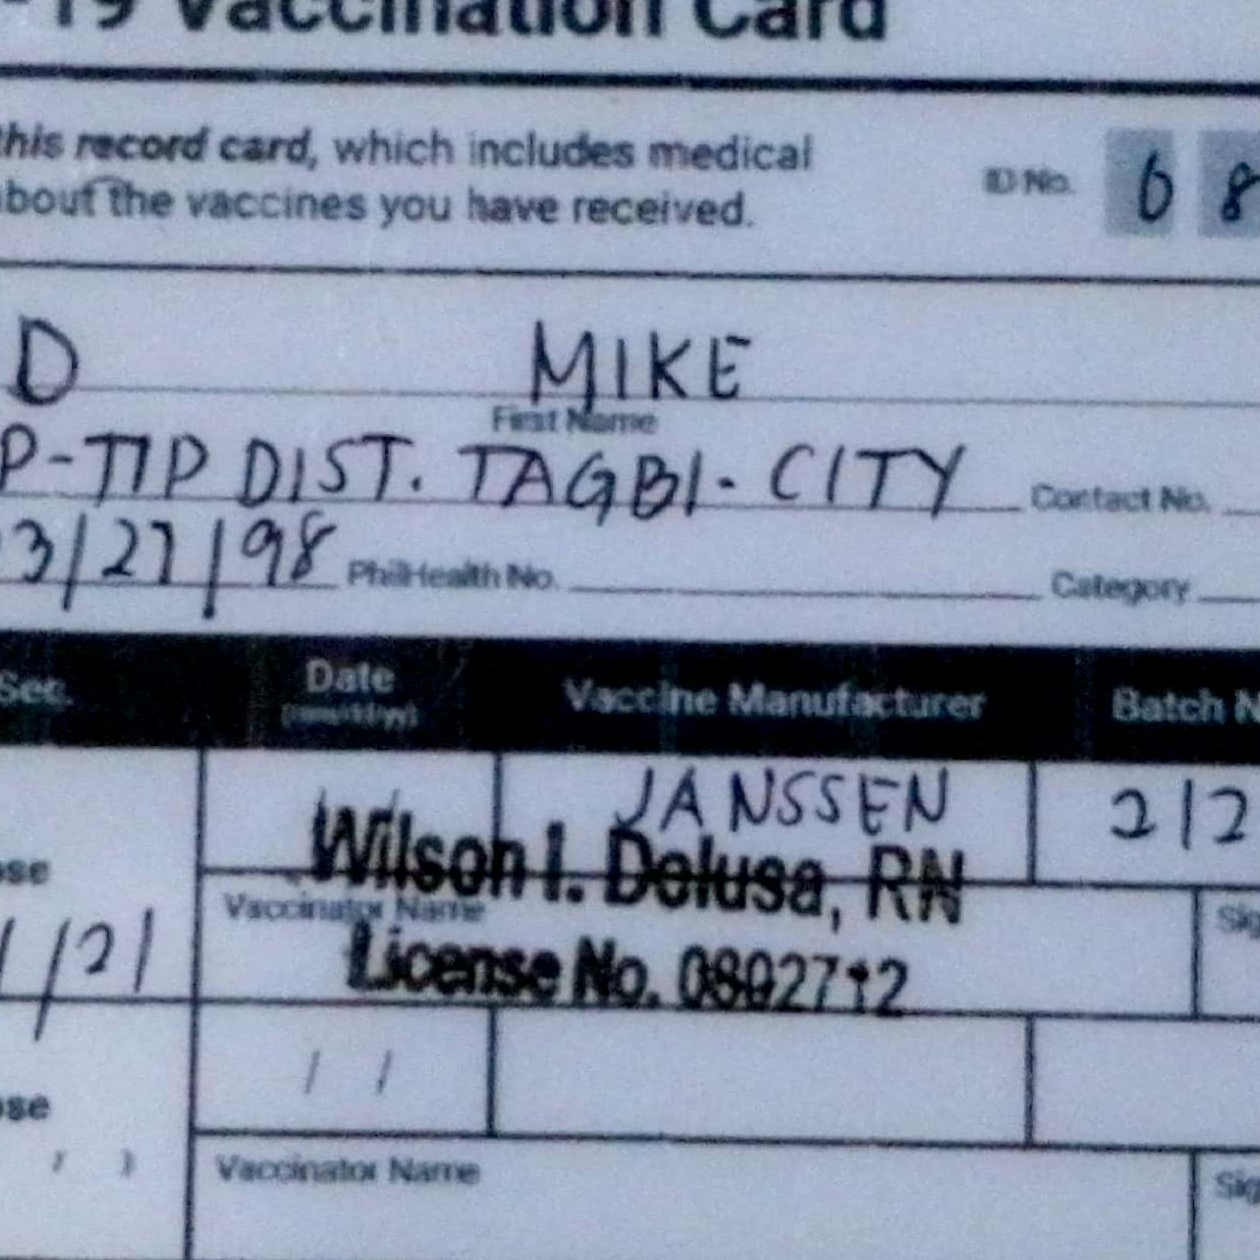 -19 Vaccination Card
this record card, which includes medical
about the vaccines you have received.
ID No. 6 8
D MIKE
First Name
P-TIP DIST. TAGBI- CITY Contact No.
3/27/98 PhilHealth No. Category
Sec. Date Vaccine Manufacturer Batch N
(mm/dd/yy)
JANSSEN 212
Wilson I. Dolusa, RN
ose
Vaccinator Name Sig
/21
License No. 0892712
/ /
ose
Vaccinator Name Sig